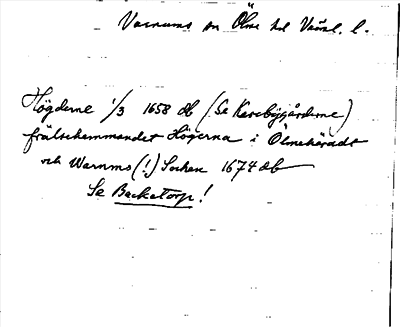 Varnums sn Ölme hd Värml. l.
Högderne 1/3 1658 db (Se Karebygårderne)
frälsehemmandet Högerna i Ölmehäradt
och Warnms (!) Sochen 1674 db
Se Backatorp!